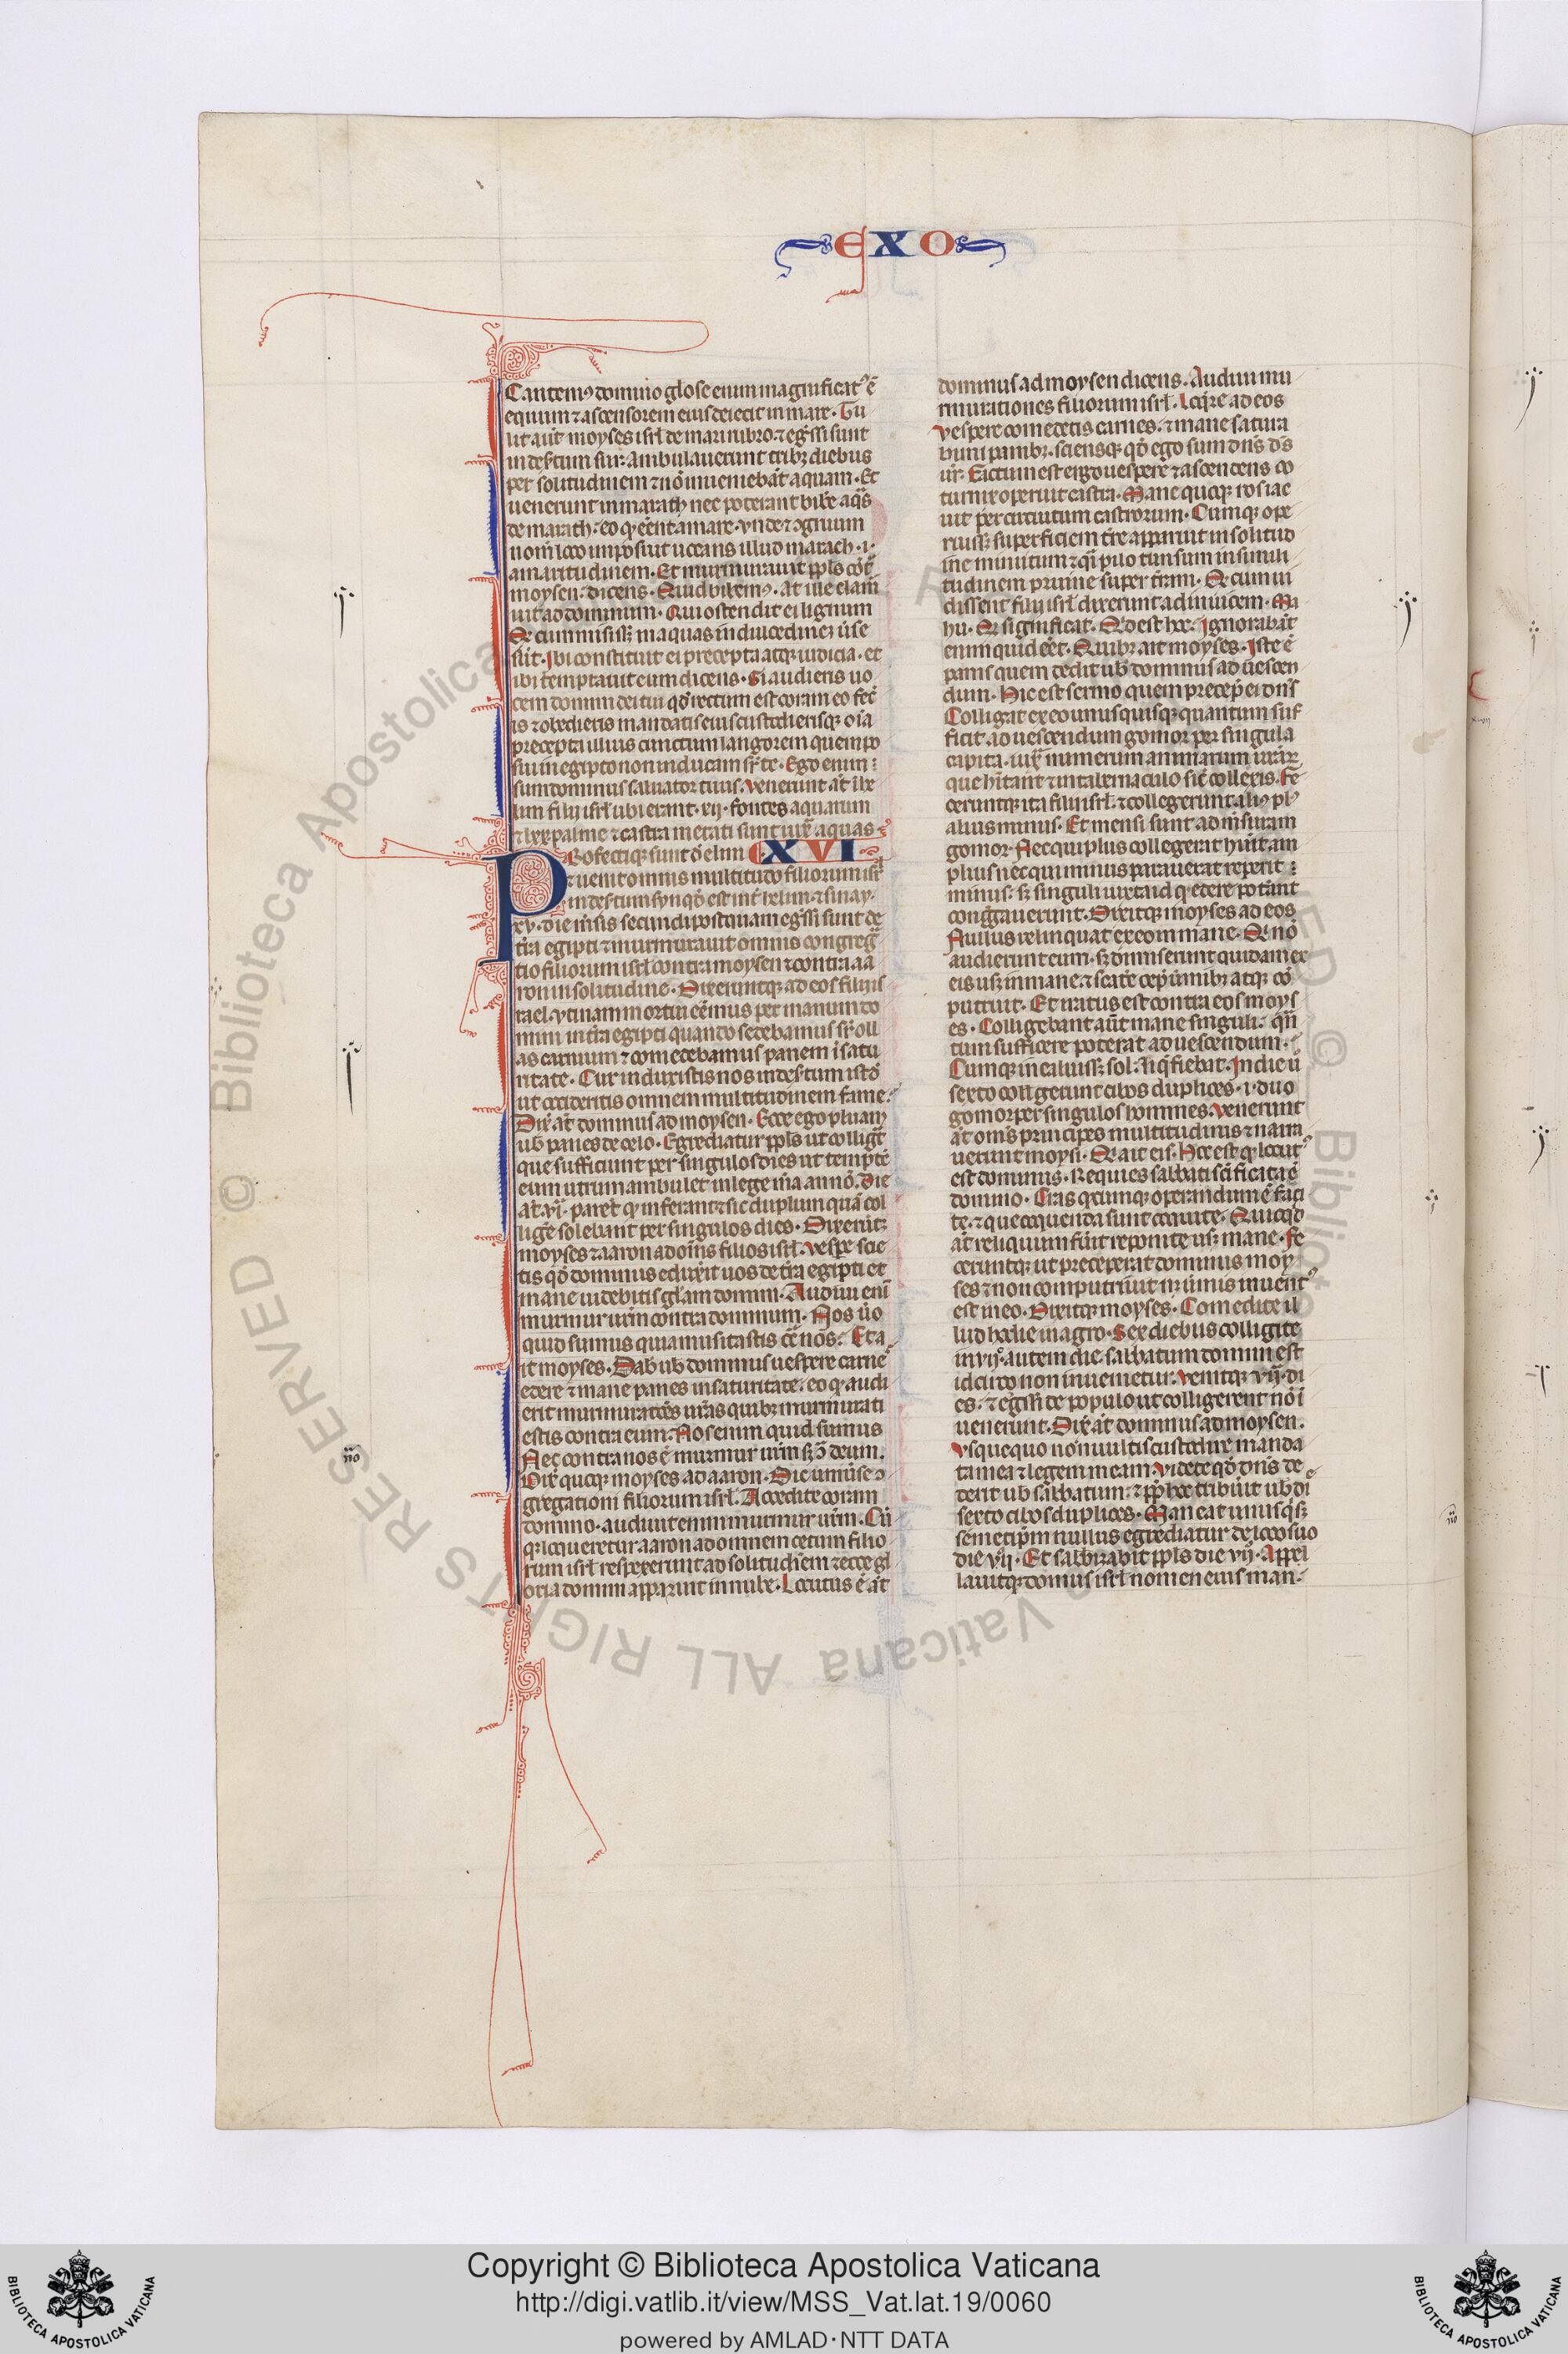 EXO
Cantemꝰ domino gloſe enim magnificatꝰ ē
equum ⁊ aſcenſorem eius deiecit in mare · Tu
lit aūt moyſes iſrł de mari rubro · ⁊ egr̄ſſi ſunt
in deſ̄tum ſur · Ambulauerunt tribꝫ diebus
per ſolitudinem ⁊ nō inueniebāt aquam · Et
uenerunt in marath nec poterant bibe̅ aqͣs
de marath · eo ꝙ eēnt amare · vnde ⁊ ꝯgruum
nom̄ loco impoſuit uocans illud marach · i ·
amaritudinem · Et murmurauit ppl̄s cōtͣ
moyſen · dicens · Quid bibemꝰ · At ille clam
uit ad dominum · Qui oſtendit ei lignum
Qd̄ cum miſiſſꝫ in aquas in dulcedinē ūſe
ſūt · Ibi conſtituit ei precepta atqꝫ iudicia · et
ibi temptauit eum dicens · Si audieris uo
cem domini dei tui ⁊ qd̄ rectum eſt coram eo fec̄
is ⁊ obedieris mandatis eius cuſtodieriſqꝫ oīa
precepta illius cunctum langorem quem po
ſui in egipto non inducam ſr̄ te · Ego enim
ſum dominus ſaluator tuus · Venerunt āt ī he
lim filii iſrł ubi erant · xij · fontes aquarum
⁊ lxx palme ⁊ caſtra metati ſunt iuxͣ aquas
XVI
Profectiqꝫ ſunt d̄ elim
⁊ uenit omnis multitudo filiorum iſrł
in deſ̄tum ſyn qd̄ eſt int̄ helim · ⁊ ſinay ·
xv · die m̄ſis ſecundi poſtquam egr̄ſſi ſunt de
tr̄a egipti ⁊ murmurauit omnis congregͣ
tio filiorum iſrł contra moyſen ⁊ contra aa
ron in ſolitudine · Dixeruntqꝫ ad eos filii iſ
rael · vtinam mortui eēmus per manum do
mini in tr̄a egipti quando ſedebamus ſr̄ oll
as carnium ⁊ comedebamus panem ī ſatu
ritate · Cur induxiſtis nos in deſ̄tum iſtd̄
ut occideritis omnem multitudinem fame
Dix̄ āt dominus ad moyſen · Ecce ego pluam
uob̄ panes de celo · Egrediatur ppl̄s ut colligͣt
que ſufficiunt per ſingulos dies ut temptē
eum utrum ambulet in lege m̄a an nō · Die
āt · vi · parēt ꝙ inferant ⁊ ſit duplum quā col
lige̅ ſolebant per ſingulos dies · Dixer̄tqꝫ
moyſes ⁊ aaron ad oīns filios iſrł · Veſpe̅ ſcie
tis qd̄ dominus eduxit uos de tr̄a egipti et
mane uidebitis gl̄am domini · Audiui enī
murmur ur̄m contra dominum · Nos ūo
quid ſumus quia muſitaſtis cōtͣ nos · Et a
it moyſes · Dab̄ uob̄ dominus ueſpere carnē
edere ⁊ mane panes in ſaturitate · eo ꝙ audi
erit murmurac̄ōes ur̄as quibꝫ murmurati
eſtis contra eum · Nos enim quid ſumus
Nec contra nos ē murmur ur̄m ſꝫ cͦ deum ·
Dix̄ quoqꝫ moyſes ad aaron · Dic uniūſe ꝯ
gregationi filiorum iſrł · Accedite coram
domino · audiuit enim murmur ur̄m · Cū
qꝫ loqueretur aaron ad omnem cetum filio
rum iſrł reſpexerunt ad ſolitudinem ⁊ ecce gl
oria domini apparuit in nube · Locutus ē āt
dominus ad moyſen dicens · Audiui mu
rmurationes filiorum iſrł · Loqr̄e ad eos
Veſpere comedetis carnes · ⁊ mane ſatura
bimini panibꝫ · ſcietiſqꝫ qd̄ ego ſum dn̄s d̄s
ur̄ · Factum eſt ergo ueſpere ⁊ aſcendens co
turnix operuit caſtra · Mane quoqꝫ ros iac
uit per circuitum caſtrorum · Cumqꝫ ope
ruiſſꝫ ſuperficiem tr̄re apparuit in ſolitud
ine minutum ⁊ qͣſi pilo tunſum in ſimili
tudinem pruine ſuper tr̄am · Qd̄ cum ui
diſſent filii iſrł dixerunt ad inuicem · Ma
hu · Qd̄ ſignificat · Qd̄ eſt hoc · Ignorabāt
enim quid eēt · Quibꝫ ait moyſes · Iſte ē
panis quem dedit uob̄ dominus ad ueſcen
dum · Hic eſt ſermo quem precep̄ ei dn̄s
Colligat ex eo unuſquiſqꝫ quantum ſuf
ficit ad ueſcendum gomor per ſingula
capita · iuxͣ numerum animarum ur̄ar
que hītant ⁊ in tab̄naculo ſic̄ colletis · Fe
ceruntqꝫ ita filii iſrł · ⁊ collegerunt aliꝰ plꝰ
alius minus · Et menſi ſunt ad m̄ſuram
gomor · Nec qui plus collegerat huit am
plius nec qui minus parauerat reperit
minus · ſꝫ ſinguli iuxta id ꝙ edere potāt
cong̅gauerunt · Dixitqꝫ moyſes ad eos
Nullus relinquat ex eo in mane · Qd̄ nō
audierunt eum · ſꝫ dimiſerunt quidam ex
eis uſqꝫ in mane · ⁊ ſcate̅ cep̄ ūmibꝫ atqꝫ cō
putruit · Et iratus eſt contra eos moyſ
es · Colligebant aūt mane ſinguli · qͣn
tum ſufficere poterat ad ueſcendum ·
Cumqꝫ incaluiſſꝫ ſol · liq̄fiebat · In die ū
ſexto collegerunt cibos duplices · i · duo
gomor per ſingulos homines · Venerunt
āt om̄s principes multitudinis ⁊ narra
uerunt moyſi · Qd̄ ait eis · Hoc eſt ꝙ locutꝰ
eſt dominus · Requies ſabbati ſcīficata ē
domino · Cras qd̄cumqꝫ operandum ē faci
te · ⁊ que coquenda ſunt coquite · Quicqͥd
āt reliquum fūit reponite uſqꝫ mane · Fe
ceruntqꝫ ut preceperat dominus moy
ſes ⁊ non computruit nꝫ ūmis inuentꝰ
eſt in eo · Dixitqꝫ moyſes · Comedite il
lud hodie in agro · Sex diebus colligite
in vijº autem die · ſabbatum domini eſt
idcirco non inuenietur · Venitqꝫ · vij · di
es · ⁊ egr̄ſſi de populo ut colligerent nō ī
uenerunt · Dix̄ āt dominus ad moyſen ·
Vſquequo non uultis cuſtodire manda
ta mea ⁊ legem meam · Videte qd̄ dn̄s de
derit uob̄ ſabbatum · ⁊ ꝓp̄ hoc tribūit uob̄ di
ſexto cibos duplices · Maneat unuſqͥſqꝫ
ſemetip̄m nullus egrediatur de loco ſuo
die vij · Et ſabbizabit ppl̄s die vij · Appel
lauitqꝫ domus iſrł nomen eius man
Copyright © Biblioteca Apostolica Vaticana
http://digi.vatlib.it/view/MSS_Vat.lat.19/0060
powered by AMLAD·NTT DATA
BIBLIOTECA APOSTOLICA VATICANA
BIBLIOTECA APOSTOLICA VATICANA
© Biblioteca Apostolica Vaticana ALL RIGHTS RESERVED